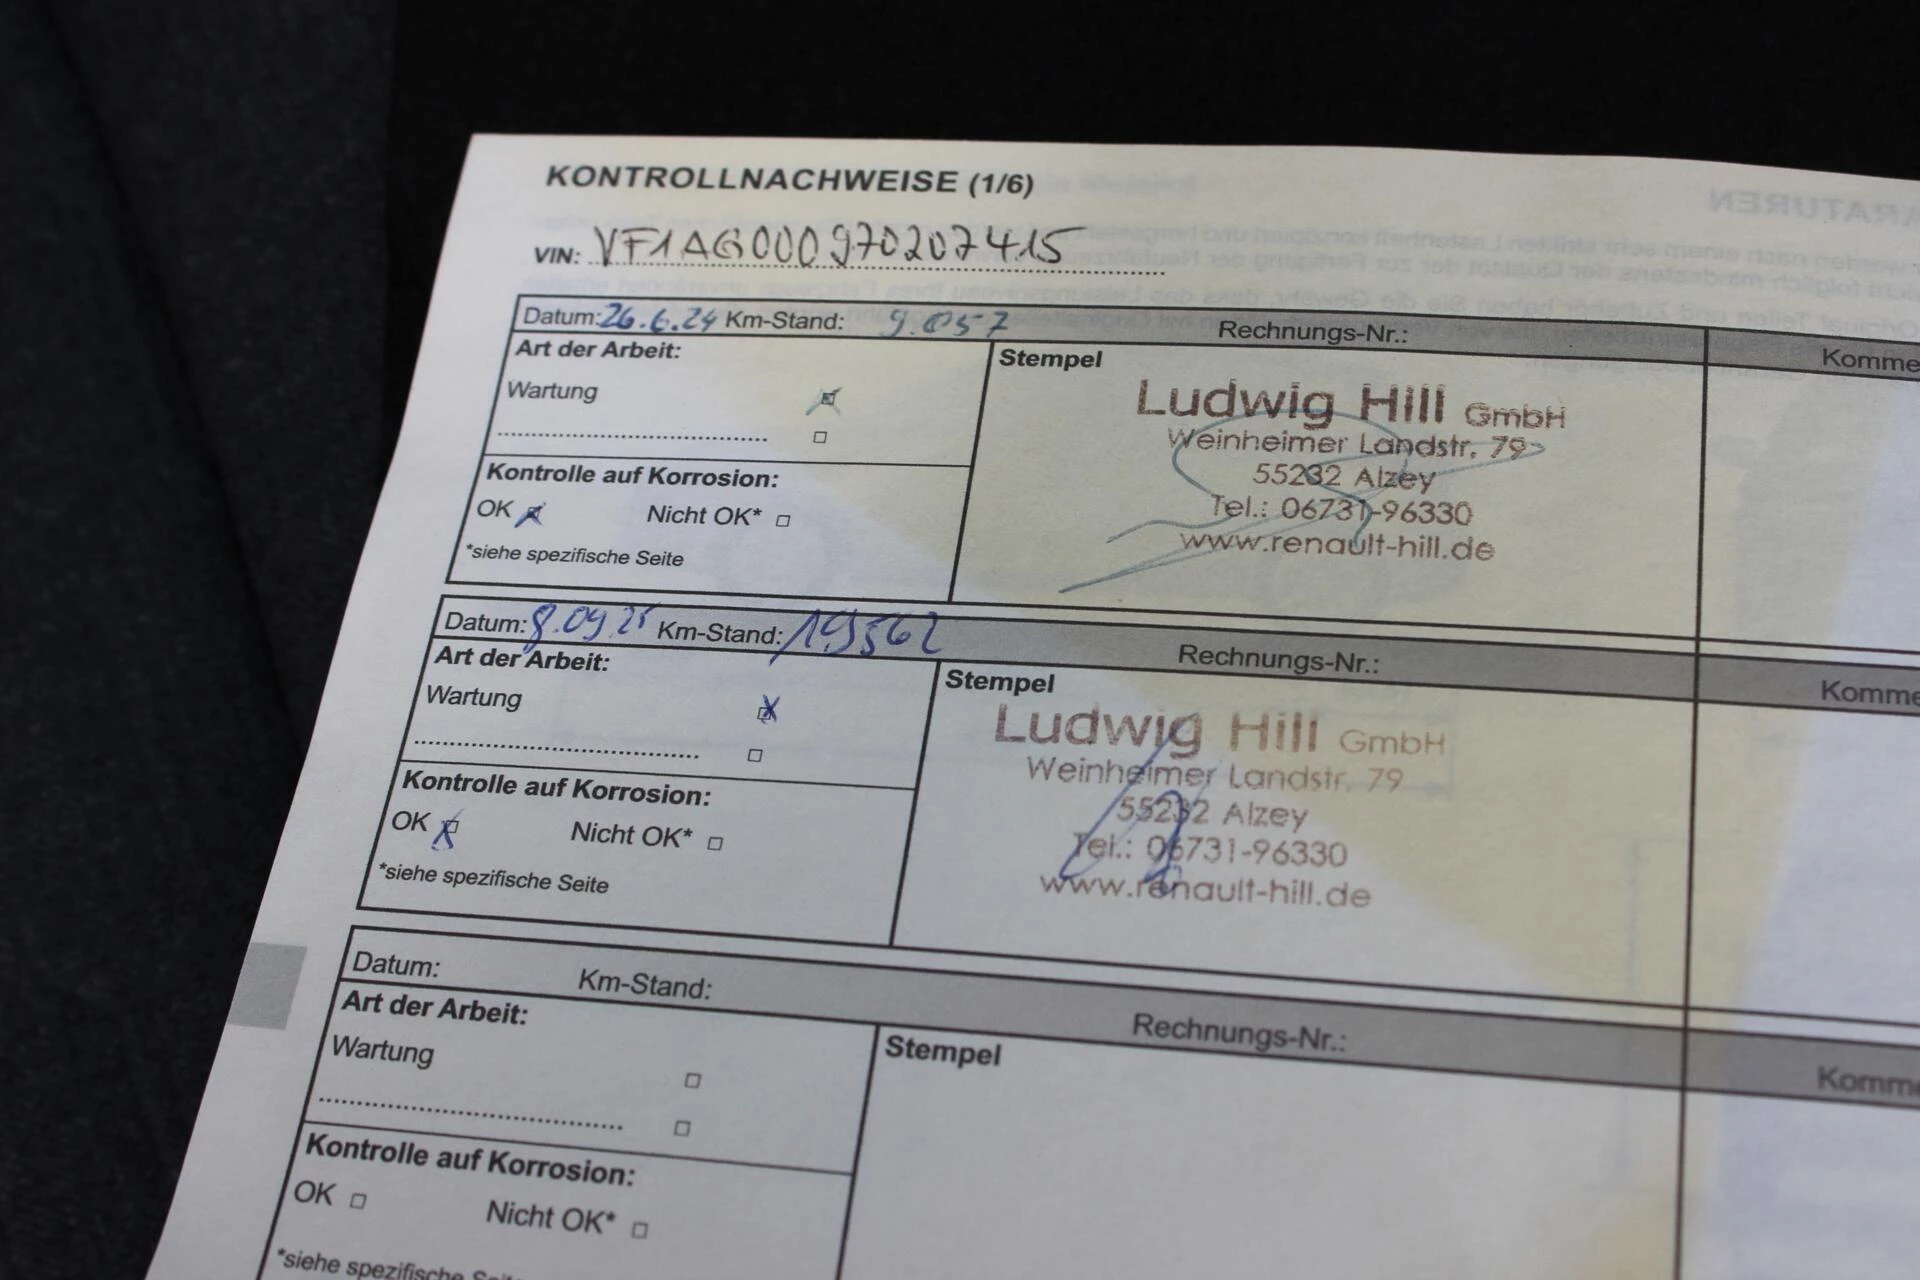 KONTROLLNACHWEISE (1/6)
VIN: VF1AG000970207415
Datum: 26.6.24 Km-Stand: 9.057 Rechnungs-Nr.: Komme
Art der Arbeit:
Wartung
Kontrolle auf Korrosion:
OK Nicht OK*
*siehe spezifische Seite
Stempel
Ludwig Hill GmbH
Weinheimer Landstr. 79
55232 Alzey
Tel.: 06731-96330
www.renault-hill.de
Datum: 8.09.25 Km-Stand: 19562 Rechnungs-Nr.: Komme
Art der Arbeit:
Wartung
Kontrolle auf Korrosion:
OK Nicht OK*
*siehe spezifische Seite
Stempel
Ludwig Hill GmbH
Weinheimer Landstr. 79
55232 Alzey
Tel.: 06731-96330
www.renault-hill.de
Datum: Km-Stand: Rechnungs-Nr.: Komme
Art der Arbeit:
Wartung
Kontrolle auf Korrosion:
OK Nicht OK*
*siehe spezifische Seite
Stempel